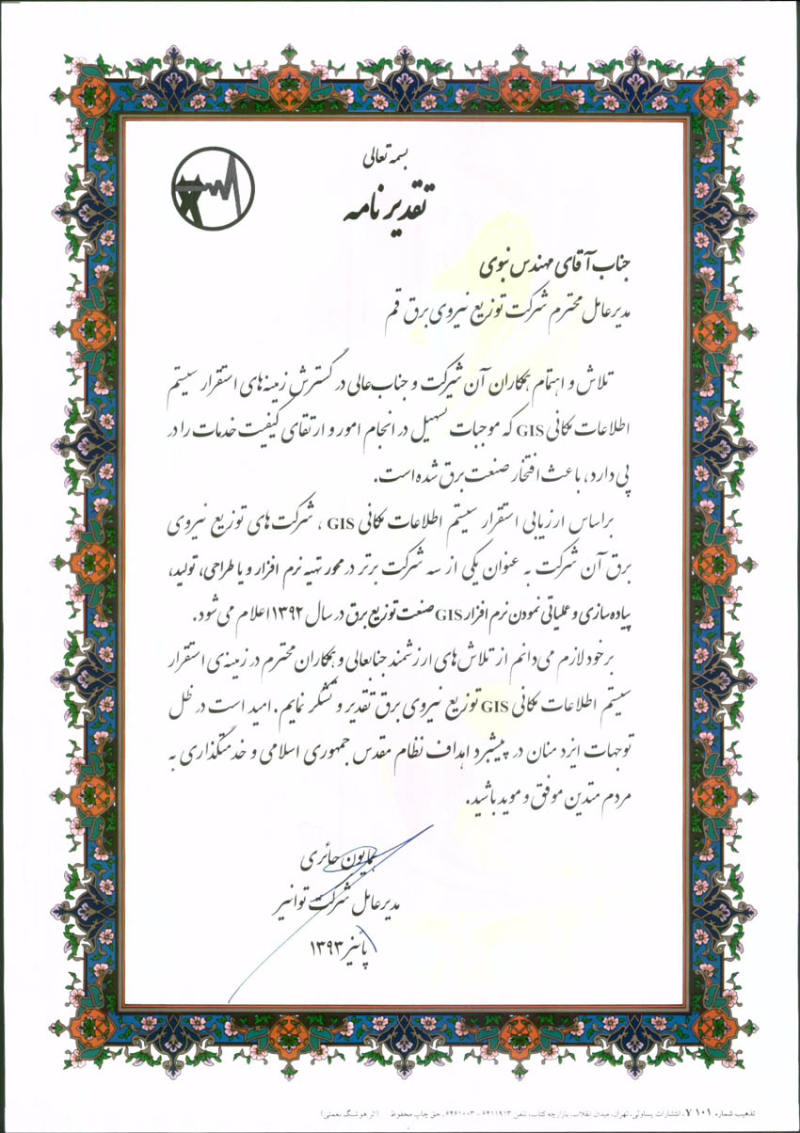 بسمه تعالی
تقدیرنامه
جناب آقای مهندس نبوی
مدیرعامل محترم شرکت توزیع نیروی برق قم
تلاش و اهتمام همکاران آن شرکت و جناب‌عالی در گسترش زمینه‌های استقرار سیستم
اطلاعات مکانی GIS که موجبات تسهیل در انجام امور و ارتقای کیفیت خدمات را در
پی دارد، باعث افتخار صنعت برق شده است.
براساس ارزیابی استقرار سیستم اطلاعات مکانی GIS ، شرکت‌های توزیع نیروی
برق آن شرکت به عنوان یکی از سه شرکت برتر در محور تهیه نرم افزار و یا طراحی، تولید،
پیاده‌سازی و عملیاتی نمودن نرم افزار GIS صنعت توزیع برق در سال ۱۳۹۲ اعلام می‌شود.
برخود لازم می‌دانم از تلاش‌های ارزشمند جنابعالی و همکاران محترم در زمینه‌ی استقرار
سیستم اطلاعات مکانی GIS توزیع نیروی برق تقدیر و تشکر نمایم. امید است در ظل
توجهات ایزد منان در پیشبرد اهداف نظام مقدس جمهوری اسلامی و خدمتگذاری به
مردم متدین موفق و موید باشید.
همایون حائری
مدیرعامل شرکت توانیر
پائیز ۱۳۹۳
تذهیب شماره ۱۰۱ ۷، انتشارات یساولی، تهران، میدان انقلاب، بازارچه کتاب، تلفن ۶۴۱۱۹۱۳ - ۶۴۶۱۰۰۳، حق چاپ محفوظ (اثر هوشنگ نعمتی)